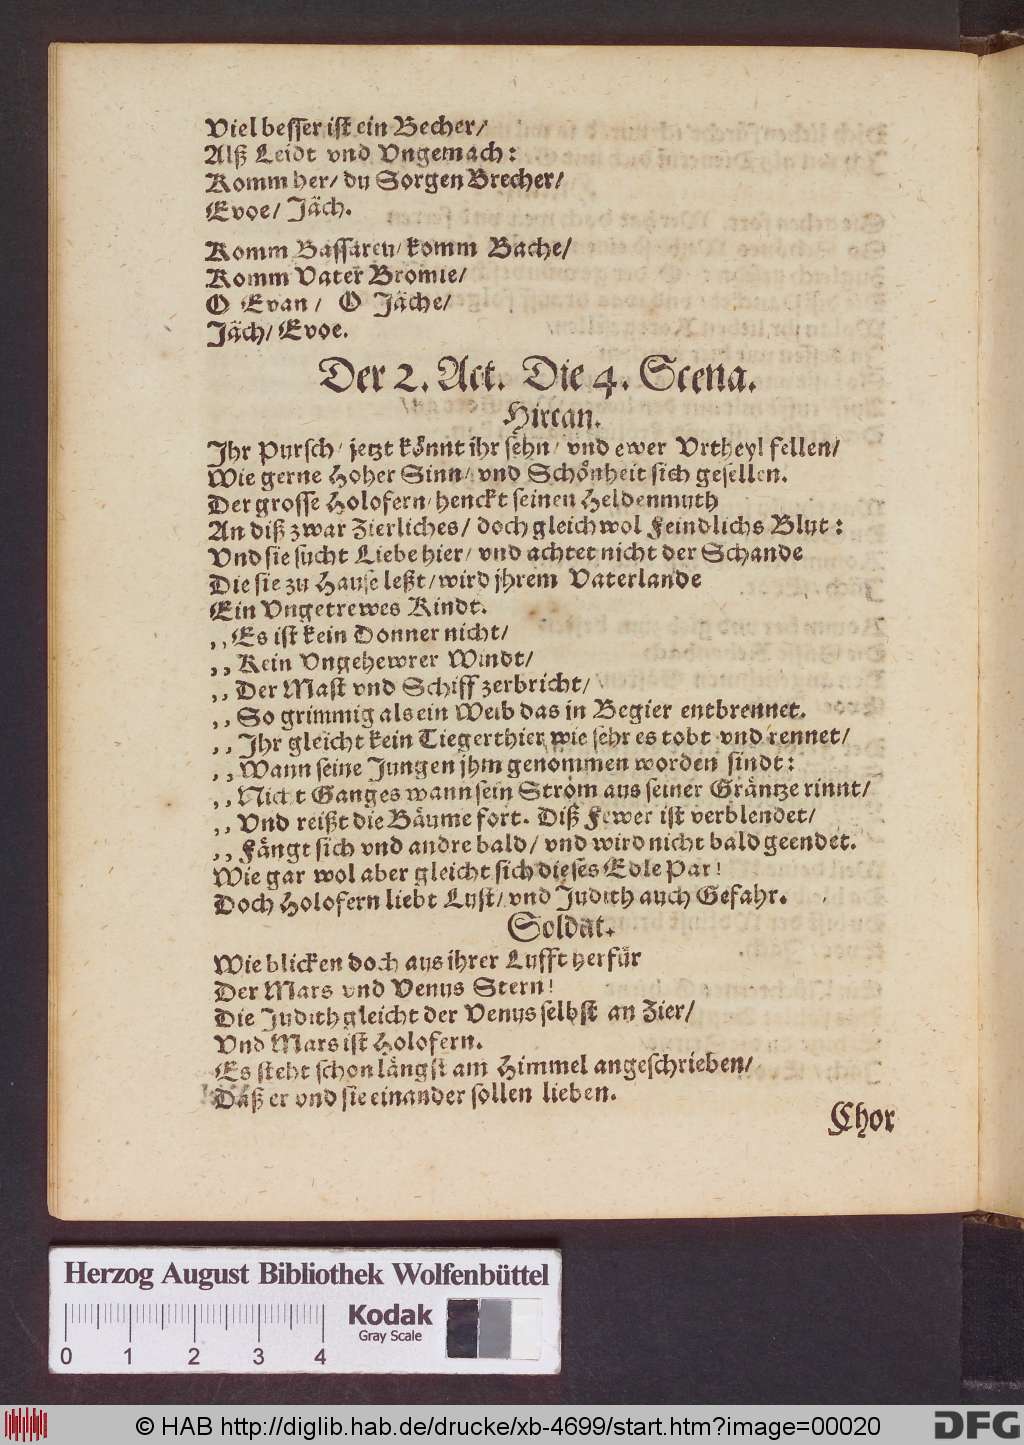 Viel besser ist ein Becher/
Alß Leidt vnd Vngemach:
Komm her/ du Sorgen Brecher/
Evoe/ Jäch.
Komm Bassareu/ komm Bache/
Komm Vater Bromie/
O Evan/ O Jäche/
Jäch/ Evoe.
Der 2. Act. Die 4. Scena.
Hircan.
Ihr Pursch/ jetzt könnt ihr sehn/ vnd ewer Vrtheyl fellen/
Wie gerne Hoher Sinn/ vnd Schönheit sich gesellen.
Der grosse Holofern/ henckt seinen Heldenmuth
An diß zwar Zierliches/ doch gleichwol Feindlichs Blut:
Vnd sie sucht Liebe hier/ vnd achtet nicht der Schande
Die sie zu Hause leßt/ wird jhrem Vaterlande
Ein Vngetrewes Kindt.
,,Es ist kein Donner nicht/
,,Kein Vngehewrer Windt/
,,Der Mast vnd Schiff zerbricht/
,,So grimmig als ein Weib das in Begier entbrennet.
,,Ihr gleicht kein Tiegerthier wie sehr es tobt vnd rennet/
,,Wann seine Jungen jhm genommen worden sindt:
,,Nicht Ganges wann sein Strom aus seiner Gräntze rinnt/
,,Vnd reißt die Bäume fort. Diß Fewer ist verblendet/
,,Fängt sich vnd andre bald/ vnd wird nicht bald geendet.
Wie gar wol aber gleicht sich dieses Edle Par!
Doch Holofern liebt Lust/ vnd Judith auch Gefahr.
Soldat.
Wie blicken doch aus ihrer Lufft herfür
Der Mars vnd Venus Stern!
Die Judith gleicht der Venus selbst an Zier/
Vnd Mars ist Holofern.
Es steht schon längst am Himmel angeschrieben/
Daß er vnd sie einander sollen lieben.
Chor
Herzog August Bibliothek Wolfenbüttel
Kodak
Gray Scale
0 1 2 3 4
© HAB http://diglib.hab.de/drucke/xb-4699/start.htm?image=00020
DFG